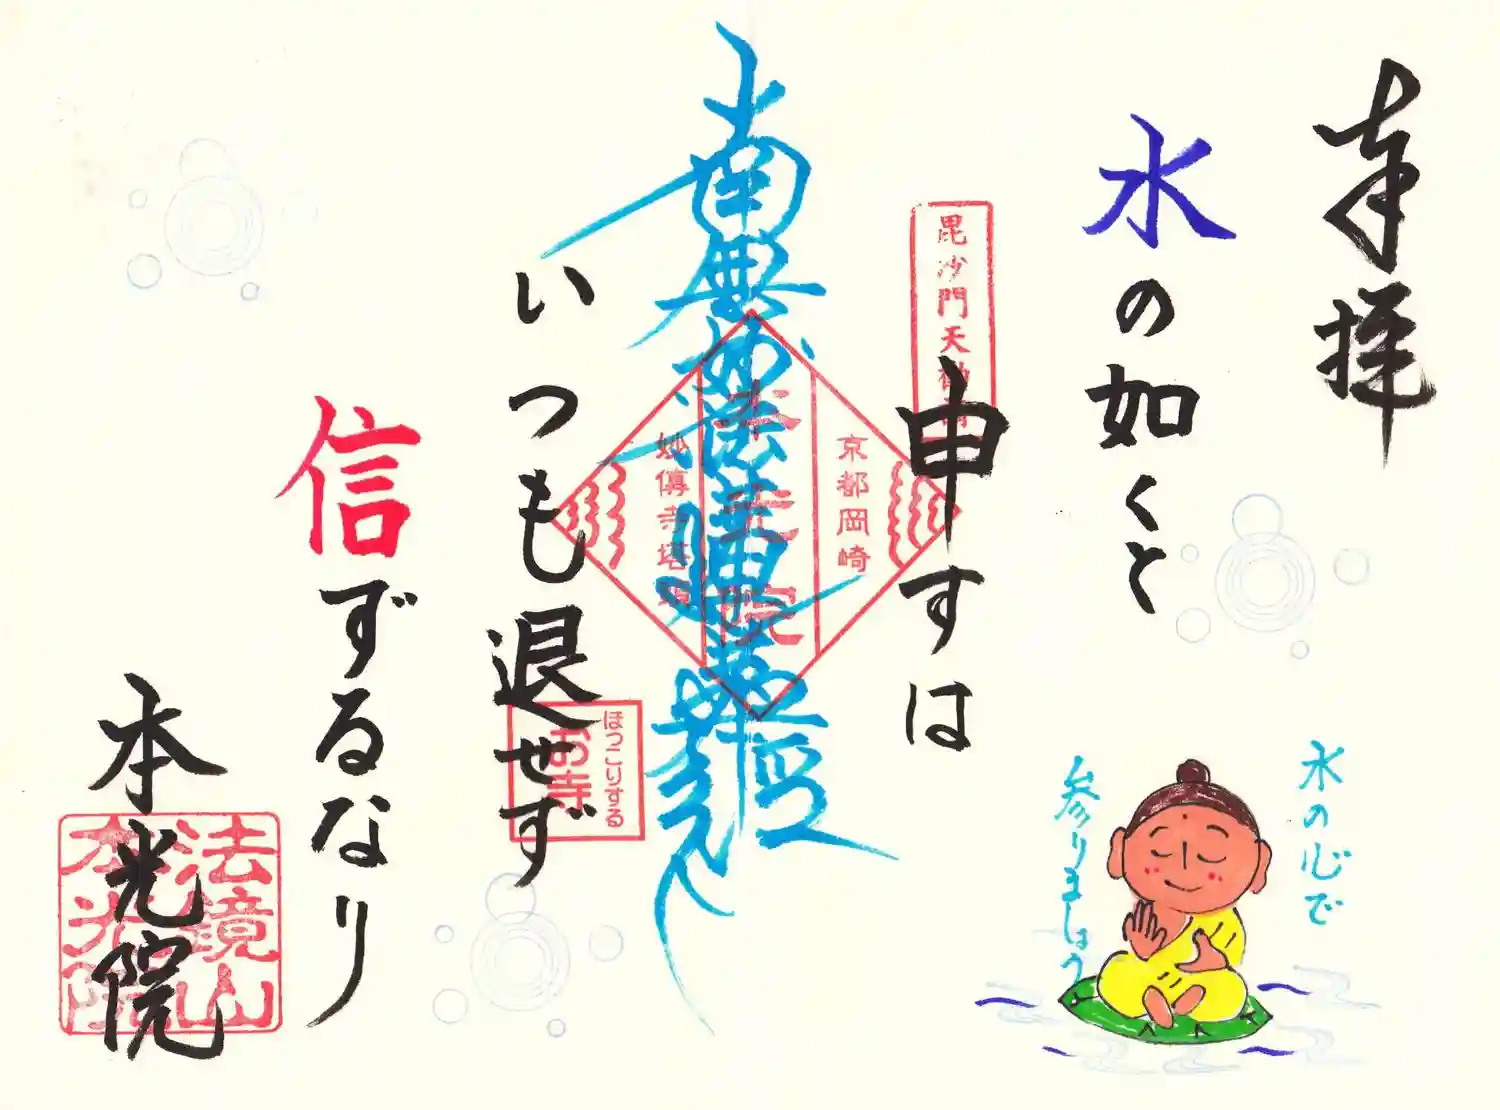 奉拝
水の如くと
申すは
いつも退せず
信ずるなり
本光院
南無妙法蓮華経
毘沙門天
京都岡崎
本光院
妙傳寺塔頭
ほっこりする
お寺
法鏡山
本光院
水の心で
参りましょう